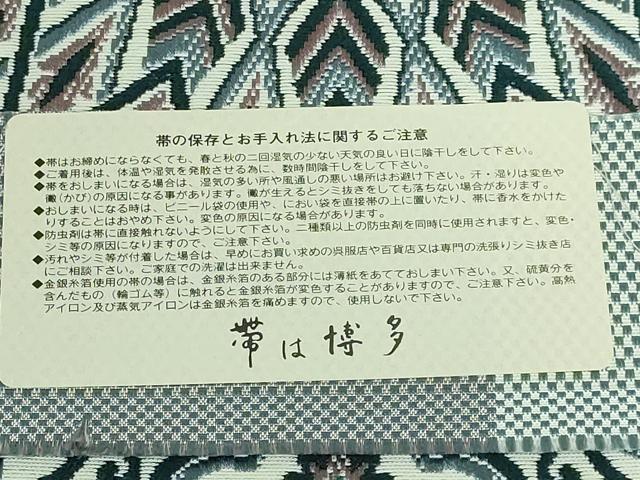 帯の保存とお手入れ法に関するご注意
◆帯はお締めにならなくても、春と秋の二回湿気の少ない天気の良い日に陰干しをして下さい。
◆ご着用後は、体温や湿気を発散させる為に、数時間陰干しをして下さい。
◆帯をおしまいになる場合は、湿気の多い所や風通しの悪い場所はお避け下さい。汗・湿りは変色や
黴(かび)の原因になる事があります。黴が生えるとシミ抜きをしても落ちない場合があります。
◆おしまいになる時は、ビニール袋の使用や、におい袋を直接帯の上に置いたり、帯に香水をかけた
りすることはおやめ下さい。変色の原因になる場合があります。
◆防虫剤は帯に直接触れないようにして下さい。二種類以上の防虫剤を同時に使用されますと、変色・
シミ等の原因になりますので、ご注意下さい。
◆汚れやシミ等が付着した場合は、早めにお買い求めの呉服店や百貨店又は専門の洗張りシミ抜き店
にご相談下さい。ご家庭での洗濯は出来ません。
◆金銀糸箔使用の帯の場合は、金銀糸箔のある部分には薄紙をあてておしまい下さい。又、硫黄分を
含んだもの（輪ゴム等）に触れると金銀糸箔が変色することがありますので、ご注意下さい。高熱
アイロン及び蒸気アイロンは金銀糸箔を痛めますので、使用しないで下さい。
帯は博多